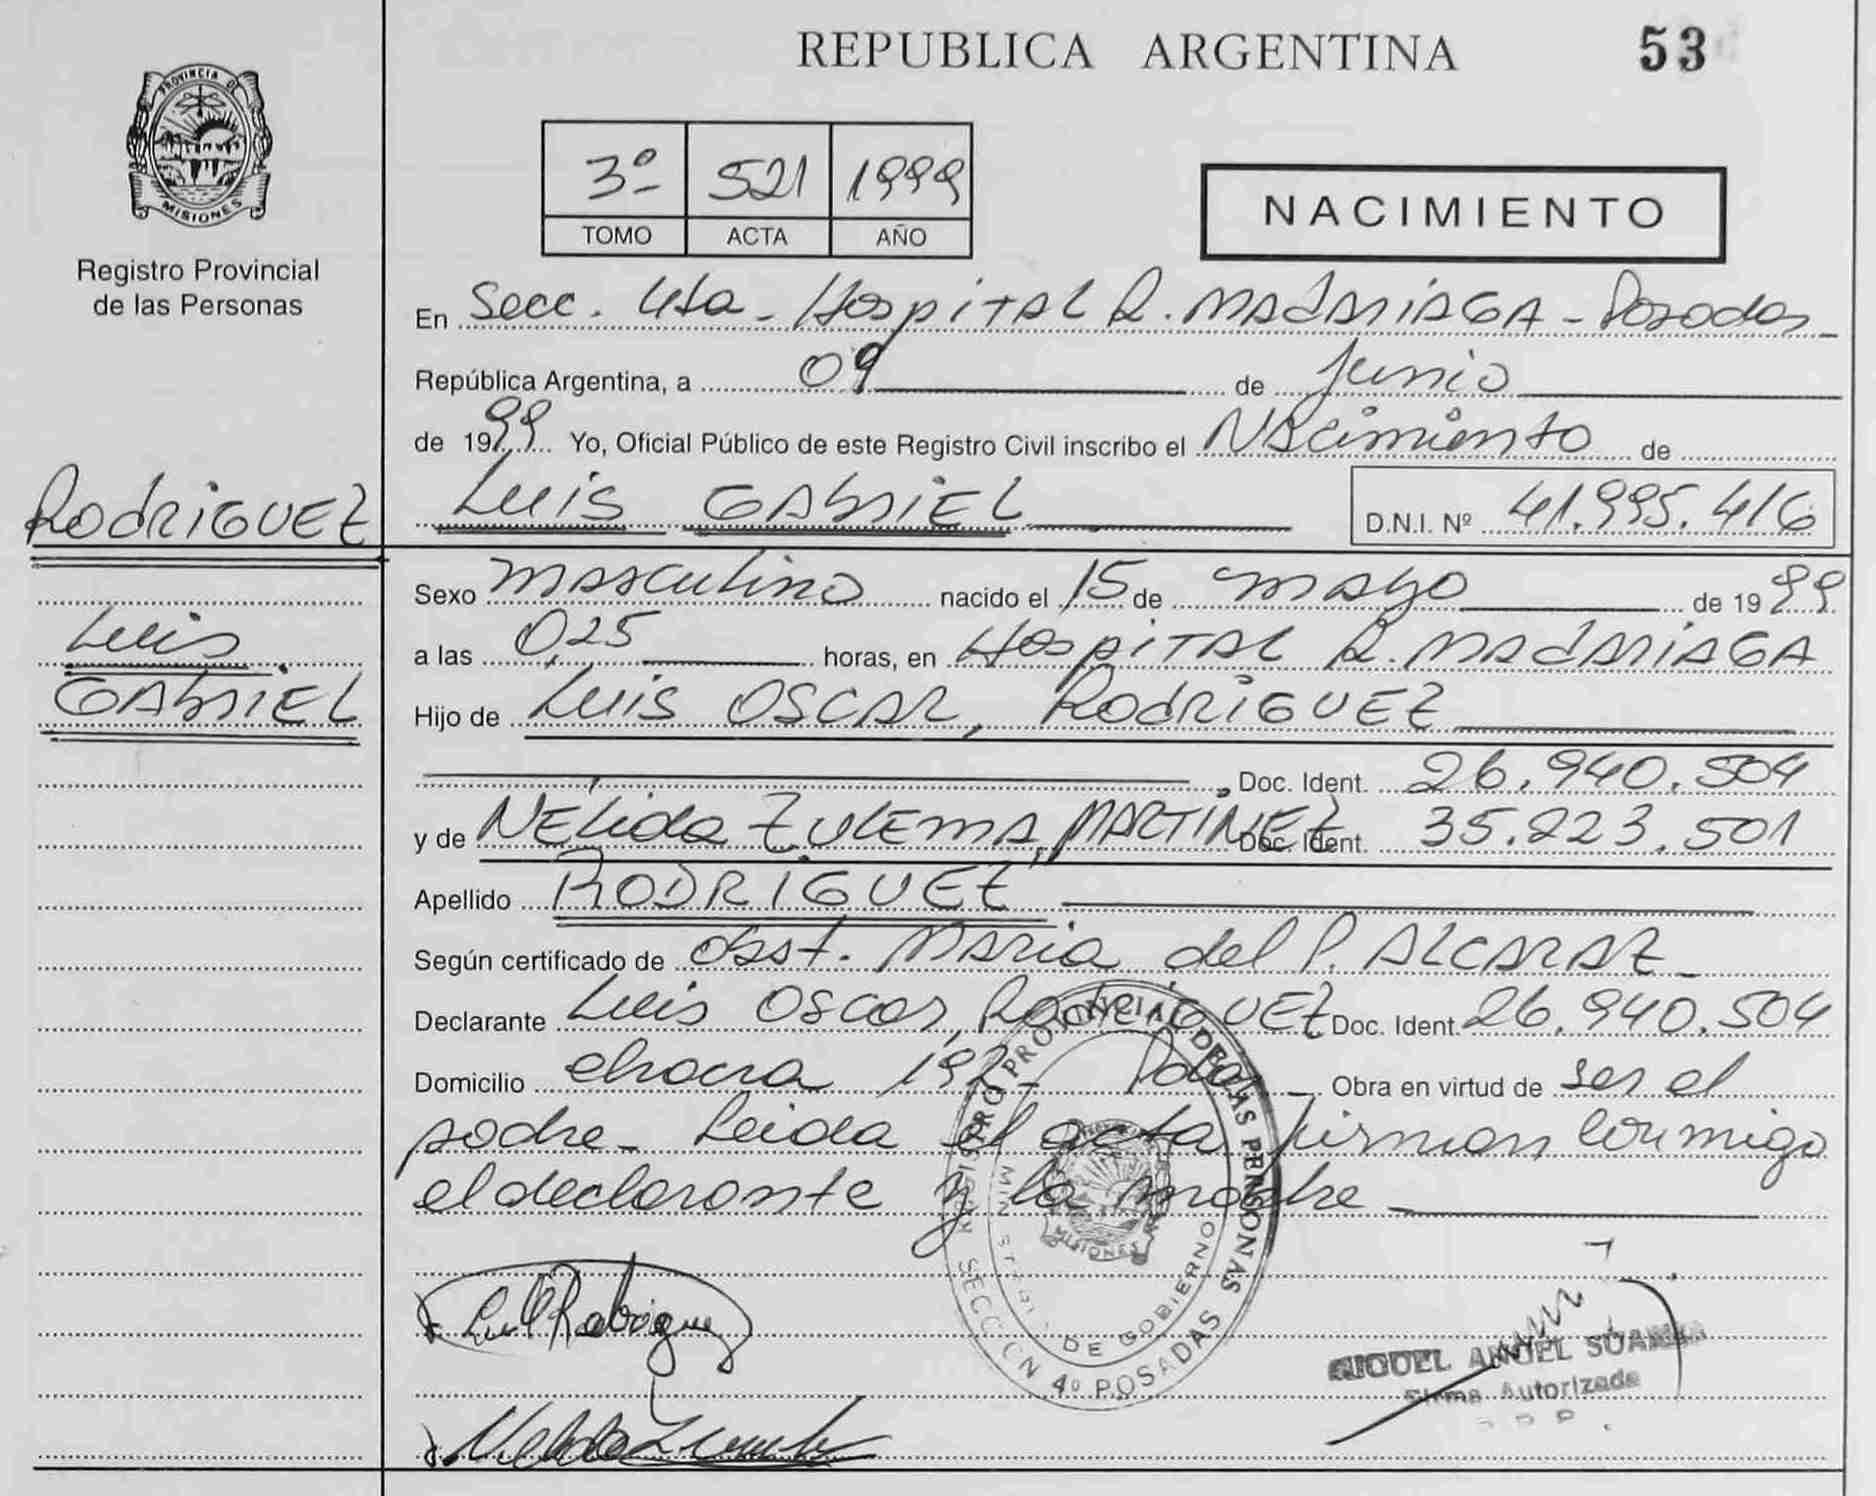 REPUBLICA ARGENTINA 53
PROVINCIA DE
MISIONES
Registro Provincial
de las Personas
3º 521 1999
TOMO ACTA AÑO
NACIMIENTO
En Secc. 4ta - Hospital R. MADARIAGA - Posadas -
República Argentina, a 09 de Junio
de 1999 Yo, Oficial Público de este Registro Civil inscribo el NAcimiento de
RodRiGUEZ Luis GAbriEL D.N.I. Nº 41.995.416
Sexo masculino nacido el 15 de mayo de 1999
Luis a las 0,25 horas, en Hospital R. MADARIAGA
GAbriEL Hijo de Luis OSCAR, RodRiGUEZ
, Doc. Ident. 26.940.504
y de NÉlida ZulEma, MARTINEZ Doc. Ident. 35.223.501
Apellido RODRIGUEZ
Según certificado de Obst. Maria del P. ALCARAZ -
Declarante Luis Oscar, RodriGUEZ Doc. Ident. 26.940.504
Domicilio chacra 192 - Pdas - Obra en virtud de ser el
padre - Leida el acta firman conmigo
el declarante y la madre -
REGISTRO PROVINCIAL DE LAS PERSONAS
MINISTERIO DE GOBIERNO
MISIONES
SECCION 4º POSADAS
Luis Rodriguez
MIGUEL ANGEL
Firma Autorizada